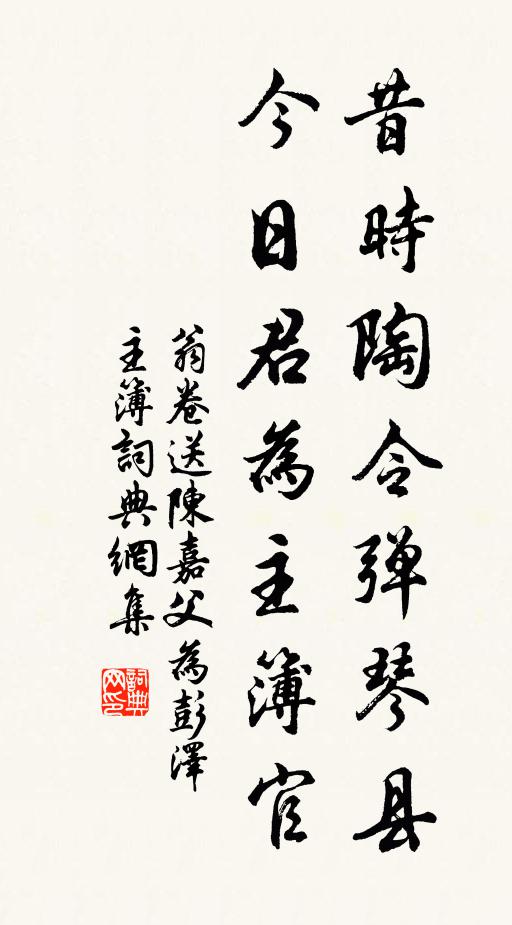 昔時陶令弹琴县
今日君為主簿官
翁卷送陳嘉父為彭澤
主簿詞典網集
詞典
网印